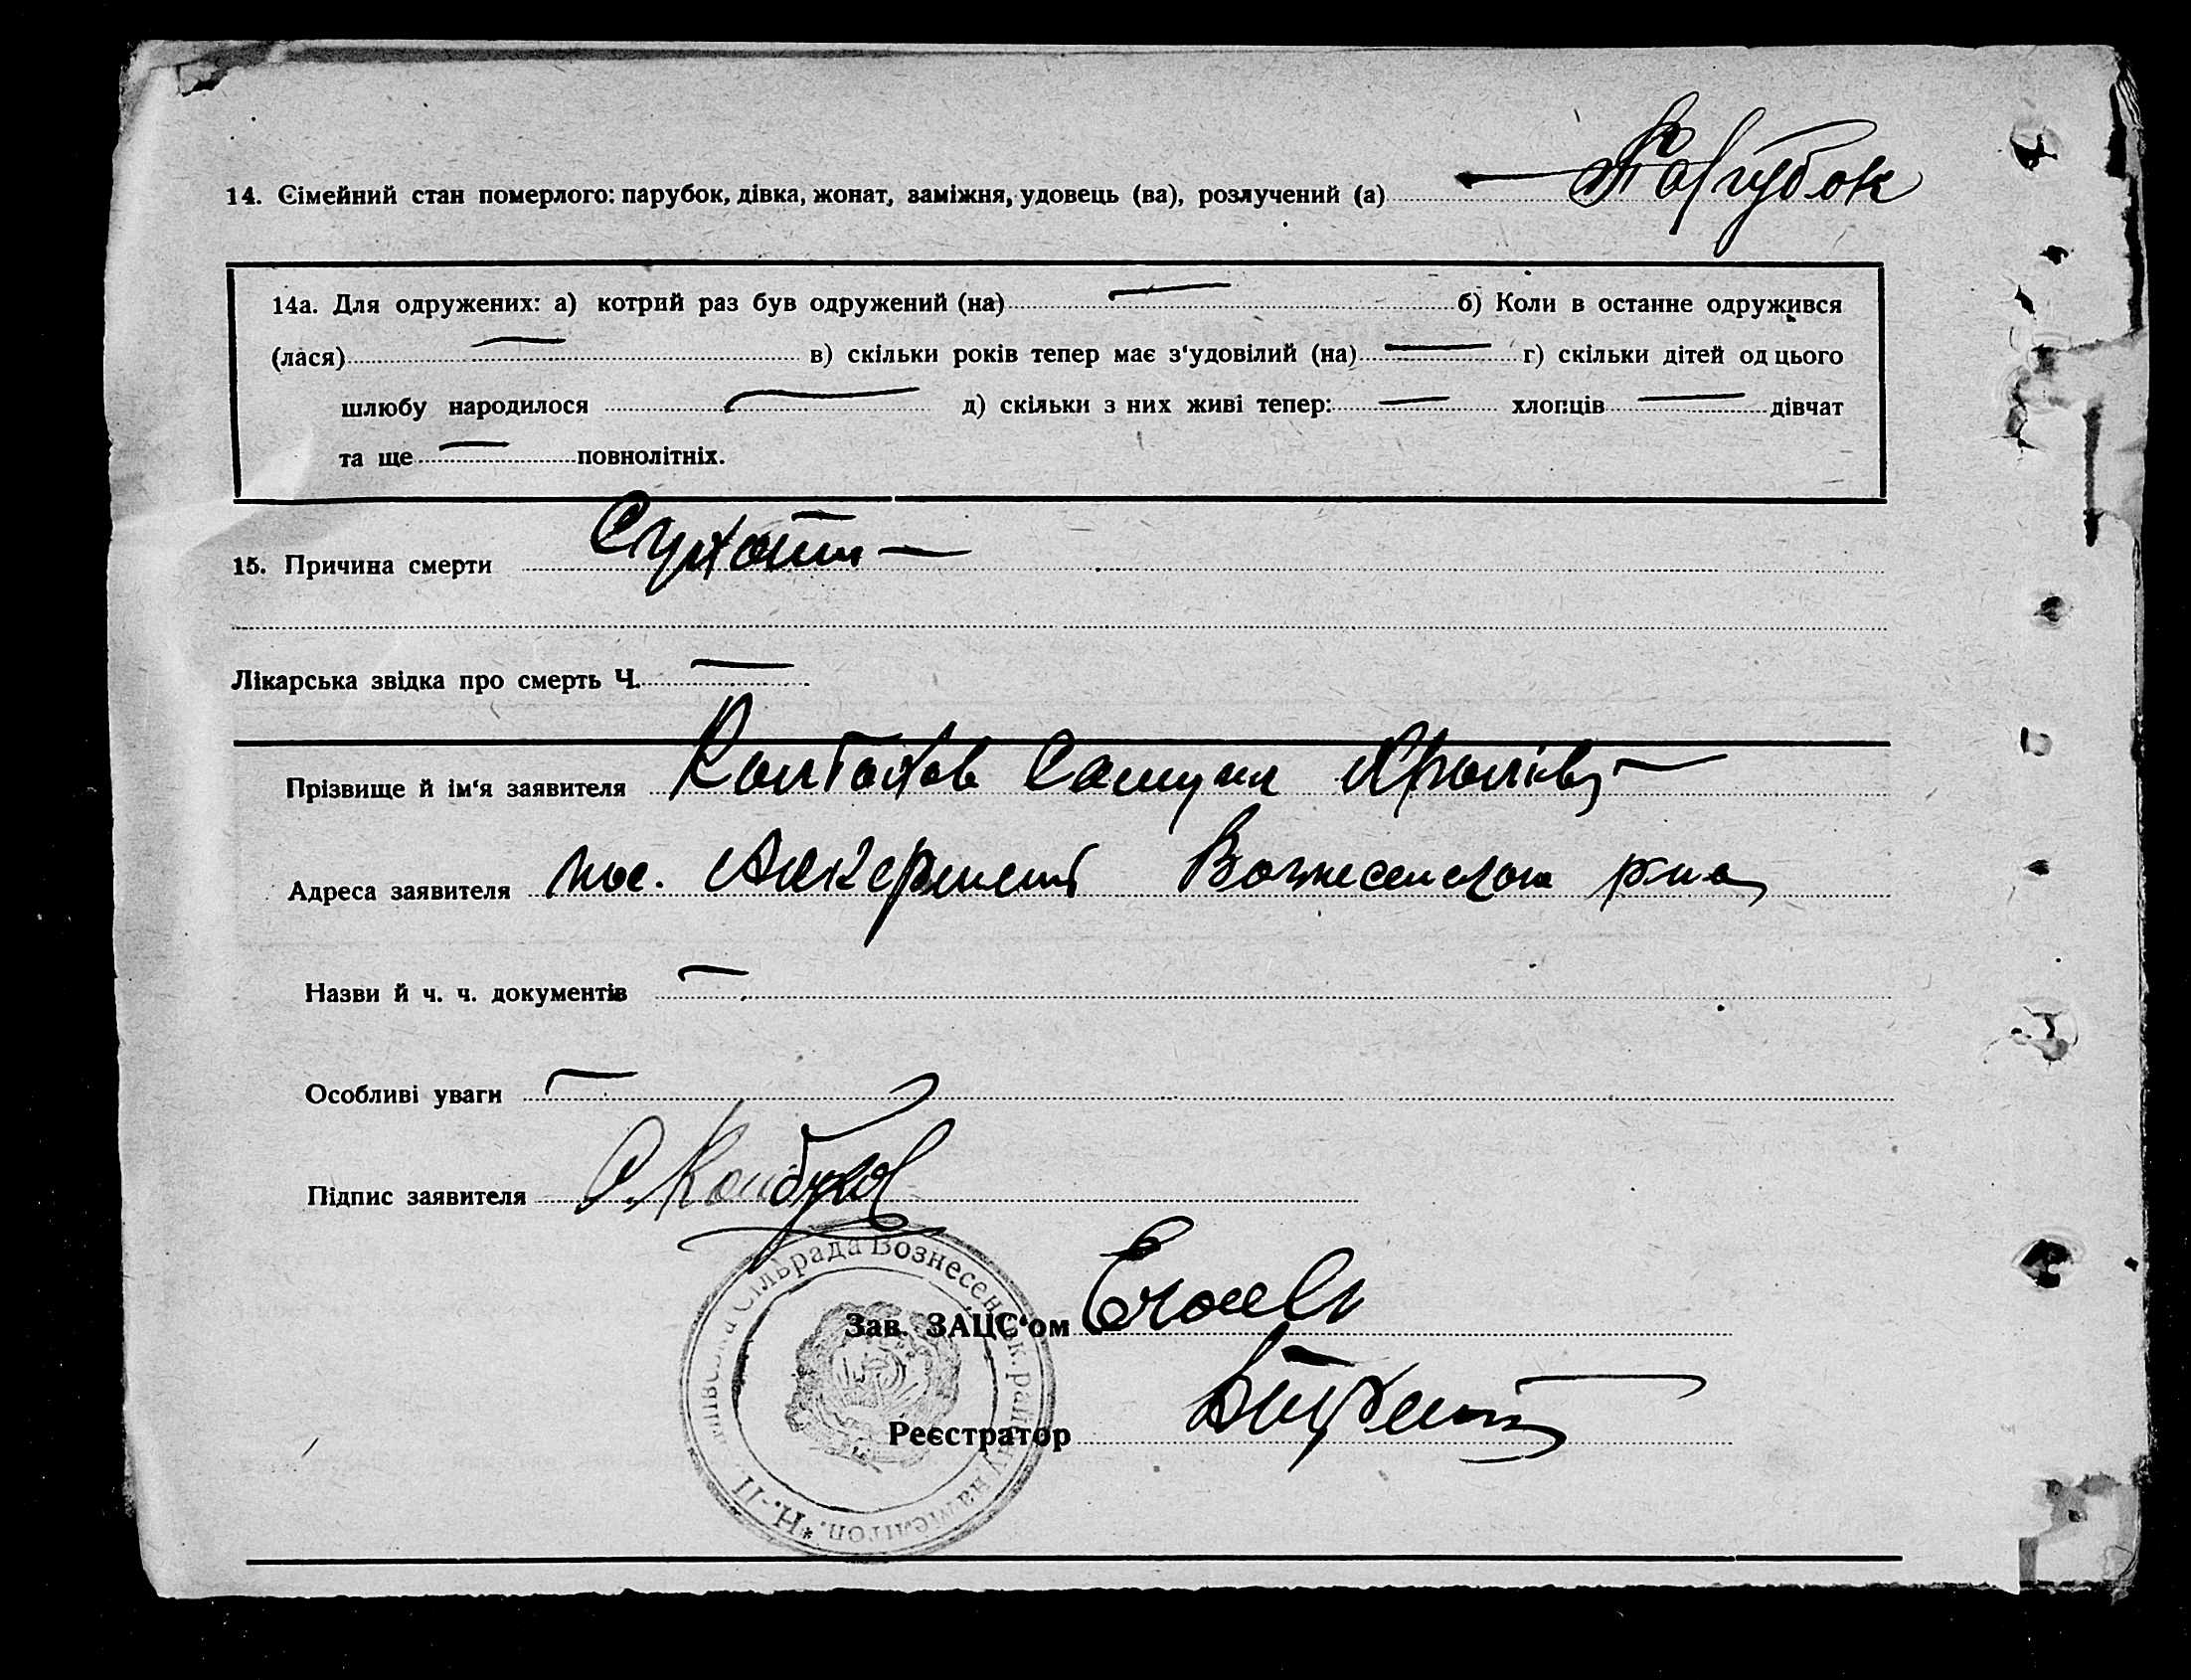 Парубок
14. Сімейний стан померлого: парубок, дівка, жонат, заміжня, удовець (ва), розлучений (а)
14а. Для одружених: а) котрий раз був одружений (на) б) Коли в останне одружився
(лася) в) скільки років тепер має з'удовілий (на) г) скільки дітей од цього
шлюбу народилося д) скільки з них живі тепер: хлопців дівчат
та ще повнолітніх.
15. Причина смерти Сухоти —
Лікарська звідка про смерть Ч. —
Прізвище й ім'я заявителя Самуил
Адреса заявителя пос. Вознесенского р-на
Назви й ч. ч. документів —
Особливі уваги —
Підпис заявителя
Сільрада Вознесенськ. району на Меліtоп. *Н.-П
Зав. ЗАЦС'ом
Реєстратор